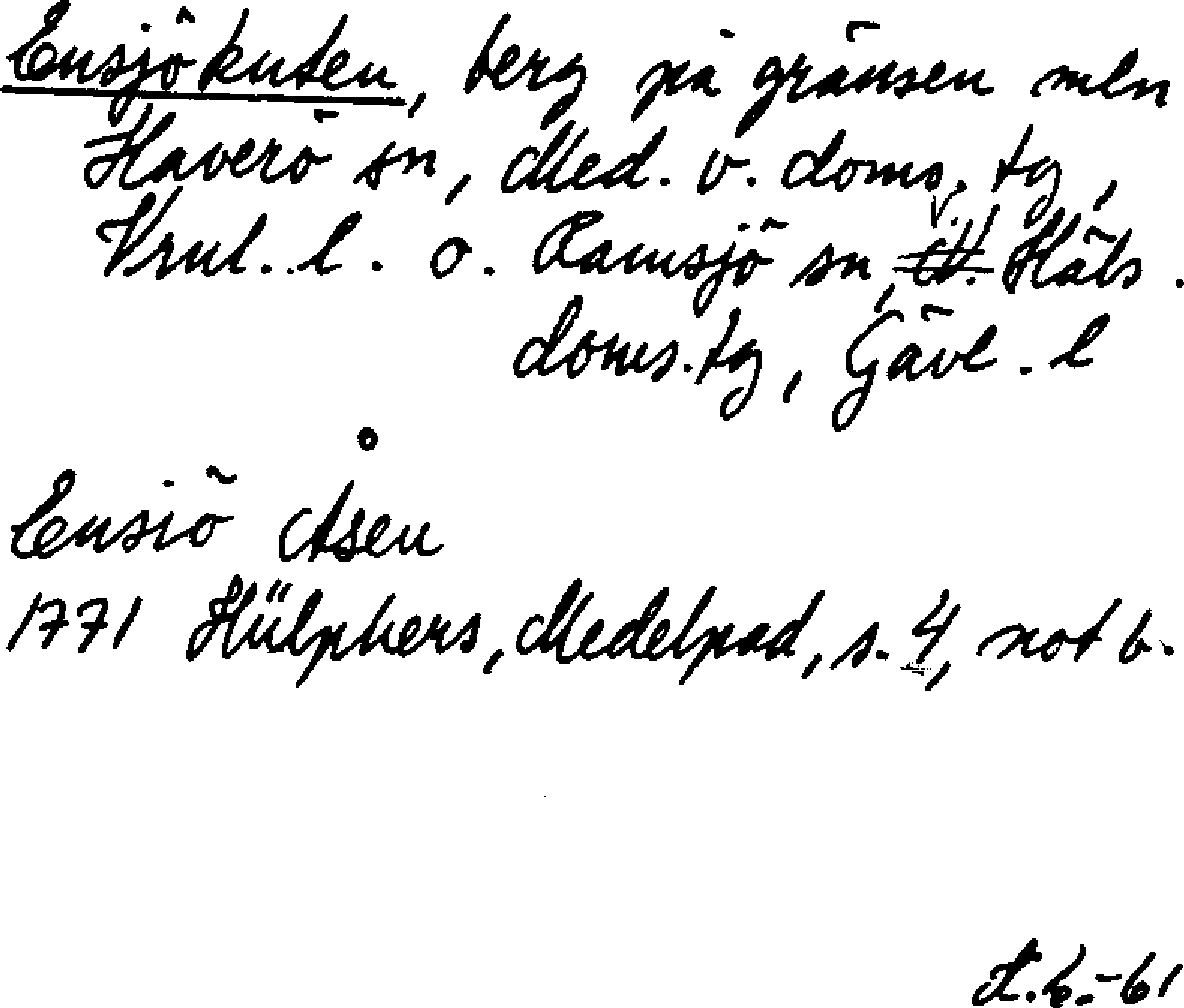 Ensjökuten, berg på gränsen mln
Haverö sn, Med. v. doms. tg,
Vrnl. l. o. Ramsjö sn, V. Häls.
doms. tg, Gävl. l
Ensiö Åsen
1771 Hülphers, Medelpad, s. 4, not b.
-61